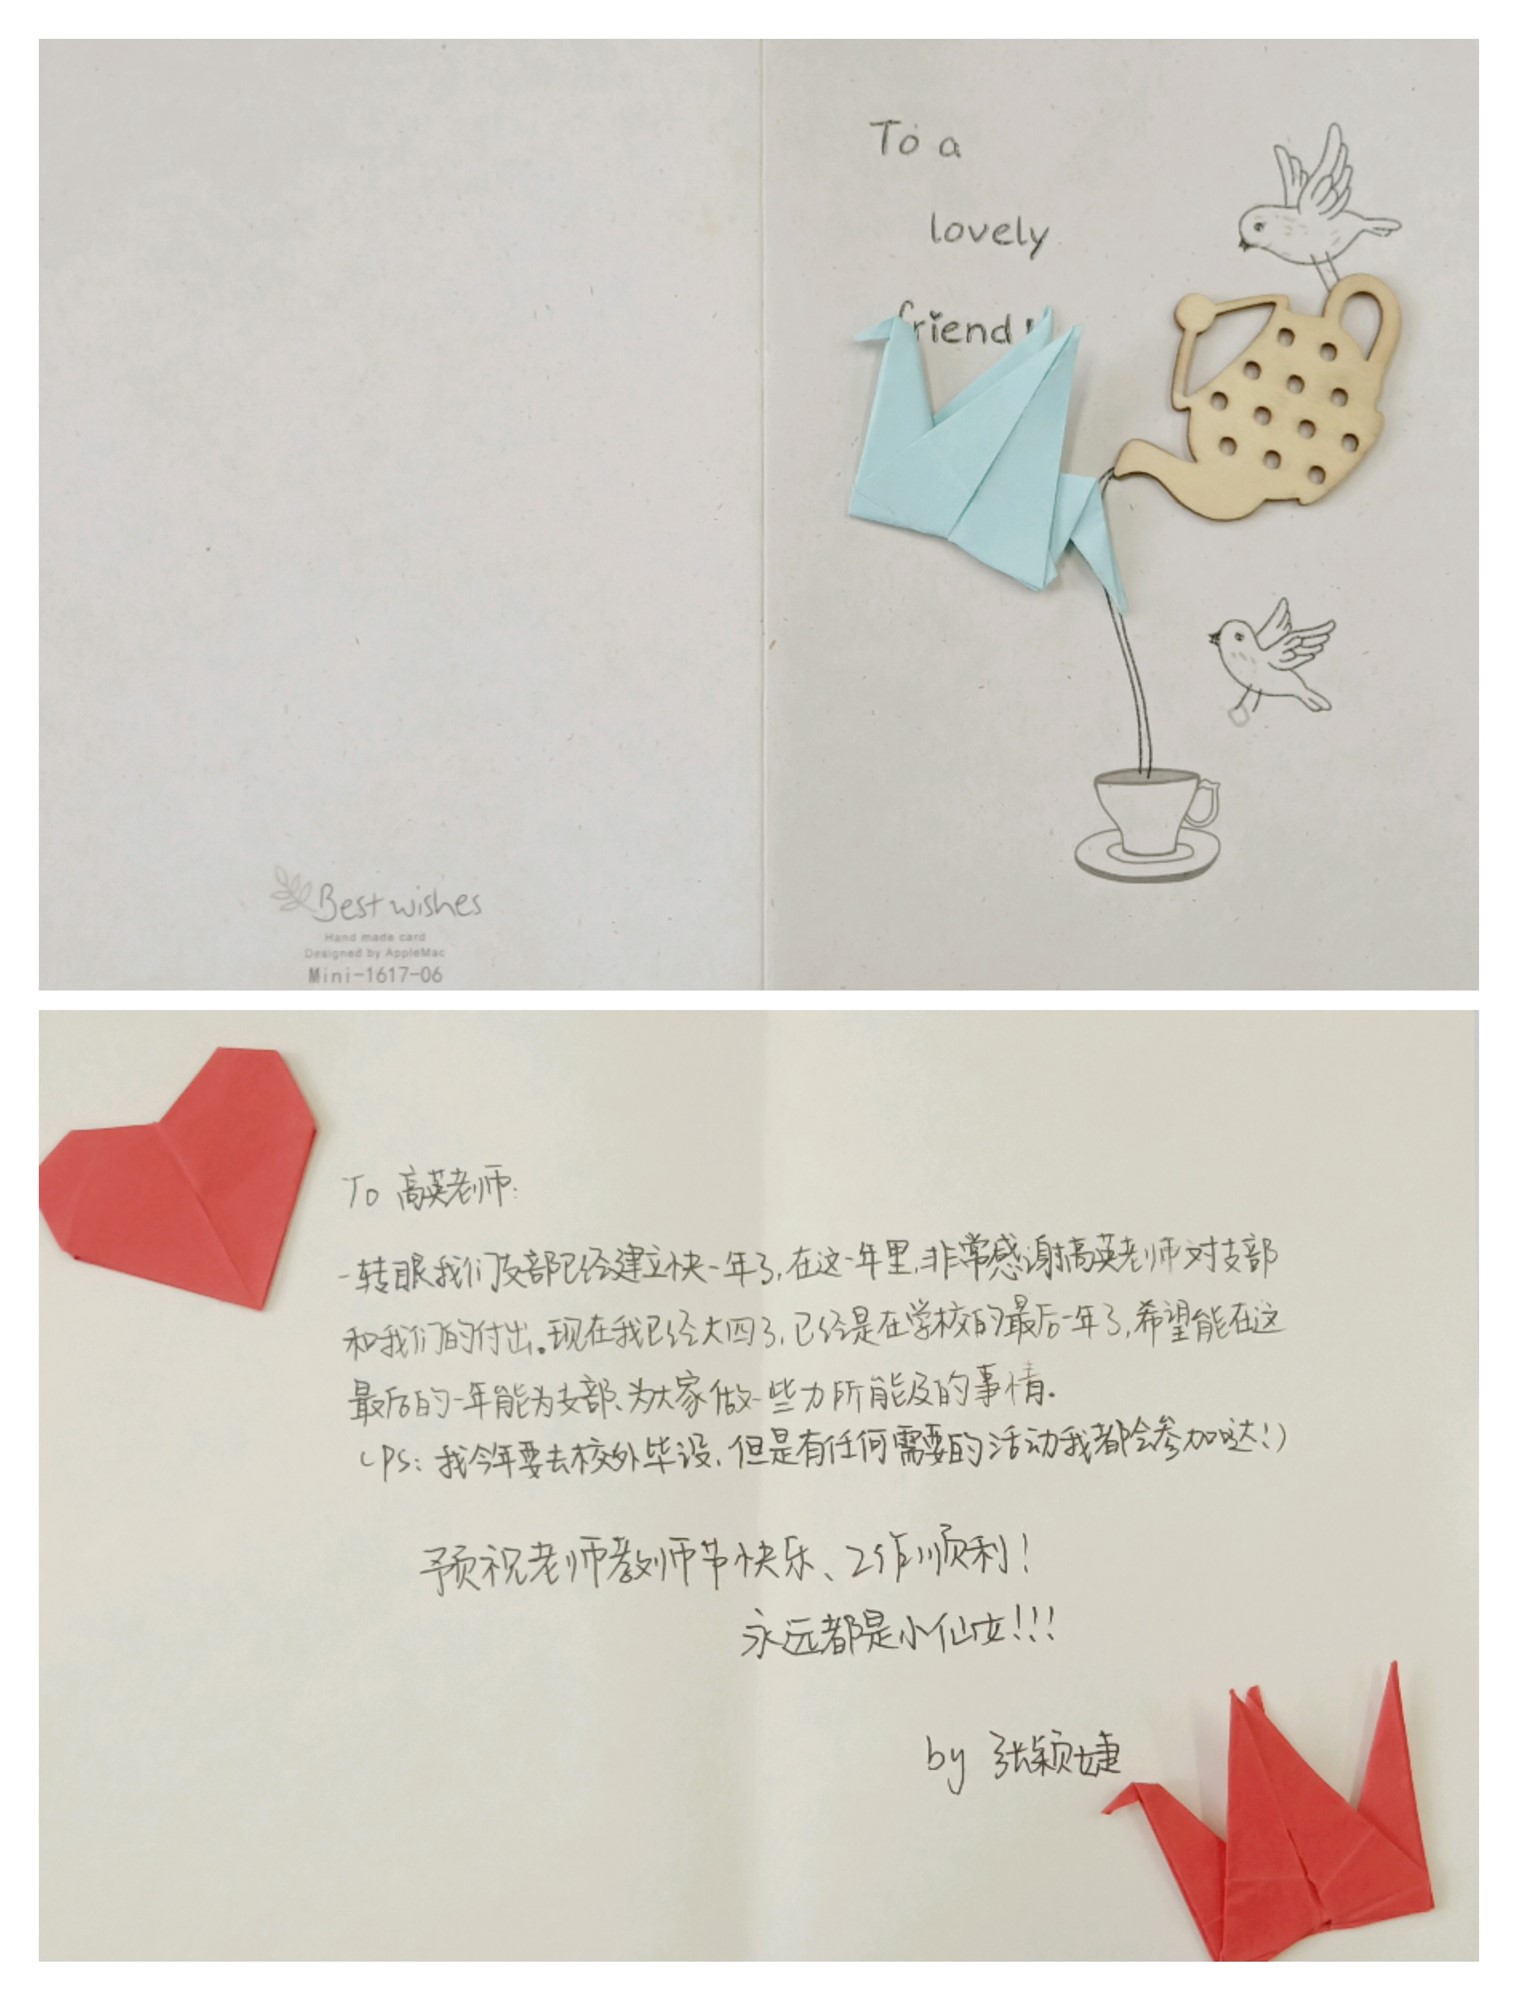 To a
lovely
friend!
Best wishes
Hand made card
Designed by AppleMac
Mini-1617-06
To 高英老师:
一转眼我们支部已经建立快一年了,在这一年里,非常感谢高英老师对支部
和我们的付出。现在我已经大四了,已经是在学校的最后一年了,希望能在这
最后的一年能为支部、为大家做一些力所能及的事情.
(PS: 我今年要去校外毕设,但是有任何需要的活动我都会参加哒!)
预祝老师教师节快乐、工作顺利!
永远都是小仙女!!!
by 张颖婕